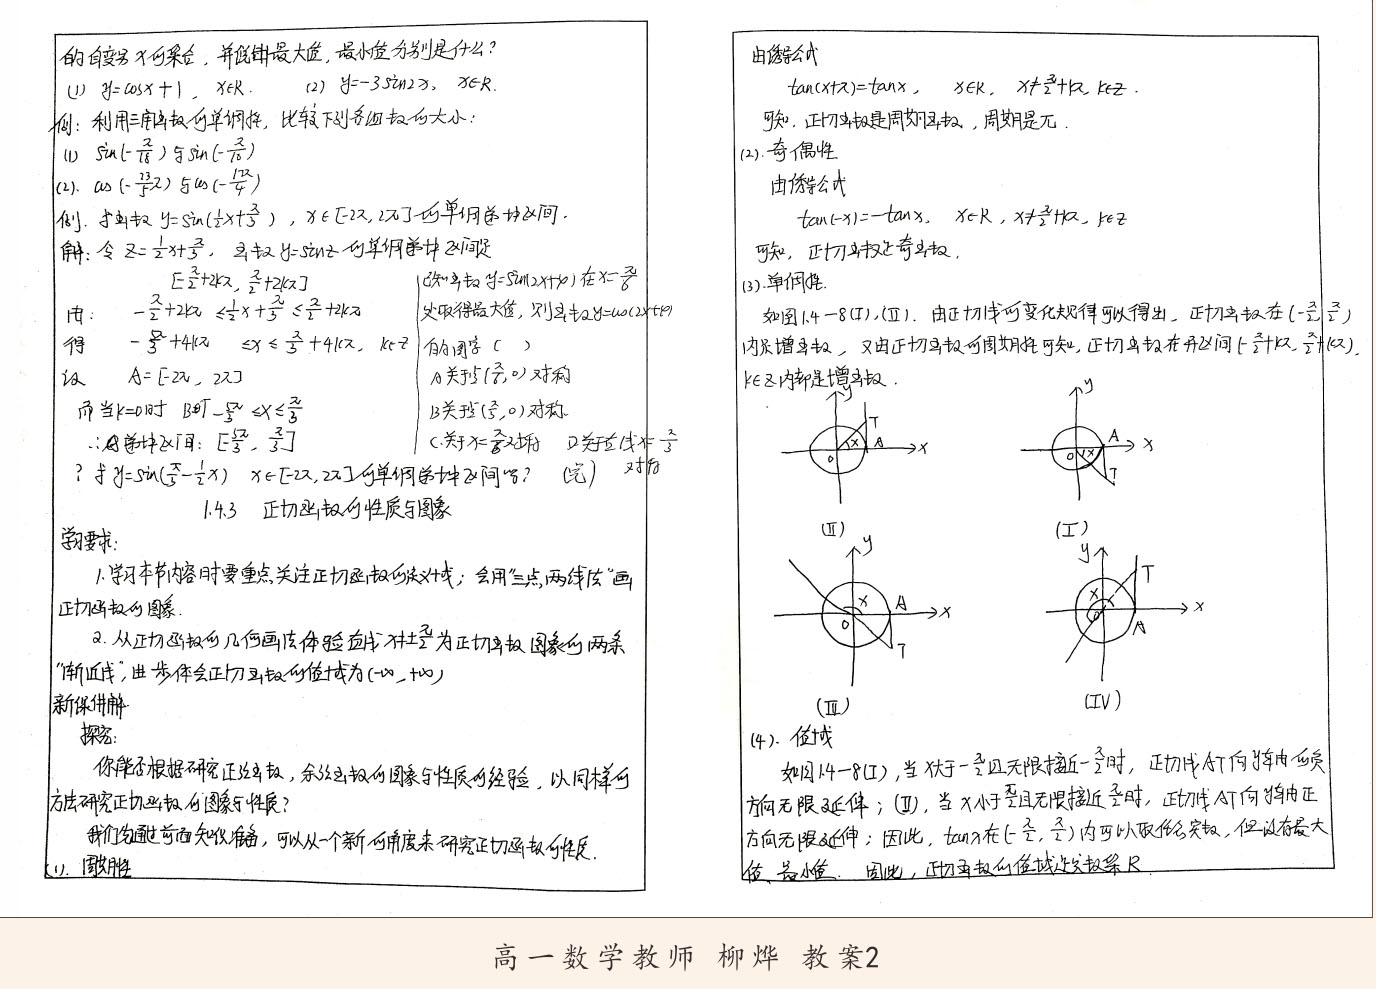 的自变量x的集合，并说出最大值，最小值分别是什么？
(1) y=cosx+1，x∈R. (2) y=-3sin2x，x∈R.
例：利用三角函数的单调性，比较下列各组数的大小：
(1) sin(-π/18)与sin(-π/10)
(2). cos(-23/5π)与cos(-17π/4)
例. 求函数y=sin(1/2x+π/3)，x∈[-2π, 2π]的单调递增区间.
解：令Z=1/2x+π/3，函数y=sinz的单调递增区间是
[-π/2+2kπ, π/2+2kπ]
由： -π/2+2kπ≤1/2x+π/3≤π/2+2kπ
得 -5π/3+4kπ ≤x≤π/3+4kπ, k∈Z
设 A=[-2π, 2π]
而当k=0时 即-5π/3≤x≤π/3
∴递增区间：[-5π/3, π/3]
已知函数y=sin(2x+φ)在x=π/6
处取得最大值，则函数y=cos(2x+φ)
的图象（ ）
A关于点(π/6,0)对称
B关于点(π/3,0)对称.
C.关于x=π/6对称 D关于直线x=π/3
对称
？求y=sin(π/3-1/2x) x∈[-2π, 2π]的单调递增区间呢？ (完)
1.4.3 正切函数的性质与图象
学习要求：
1.学习本节内容时要重点关注正切函数的定义域；会用“三点两线法”画
正切函数的图象.
2. 从正切函数的几何画法体验直线x=±π/2为正切函数图象的两条
“渐近线”，进一步体会正切函数的值域为(-∞, +∞)
新课讲解
探究：
你能否根据研究正弦函数，余弦函数的图象与性质的经验，以同样的
方法研究正切函数的图象与性质？
我们通过前面知识准备，可以从一个新的角度来研究正切函数的性质.
(1). 周期性
由诱导公式
tan(x+π)=tanx， x∈R， x≠π/2+kπ, k∈Z.
可知，正切函数是周期函数，周期是π.
(2). 奇偶性
由诱导公式
tan(-x)=-tanx， x∈R，x≠π/2+kπ, k∈Z
可知，正切函数是奇函数.
(3).单调性.
如图1.4-8(Ⅰ),(Ⅱ). 由正切线的变化规律可以得出，正切函数在(-π/2, π/2)
内是增函数，又由正切函数的周期性可知，正切函数在开区间(-π/2+kπ, π/2+kπ),
k∈Z内都是增函数.
y T x O A x
(Ⅱ)
y A x O x T
(Ⅰ)
y x A x O T
(Ⅲ)
y T x x O A
(IV)
(4). 值域
如图1.4-8(Ⅰ)，当x大于-π/2且无限接近-π/2时，正切线AT向y轴的负
方向无限延伸；(Ⅱ)，当x小于π/2且无限接近π/2时，正切线AT向y轴正
方向无限延伸；因此，tanx在(-π/2, π/2)内可以取任意实数，但没有最大
值、最小值. 因此，正切函数的值域是实数集R.
高一数学教师 柳烨 教案2